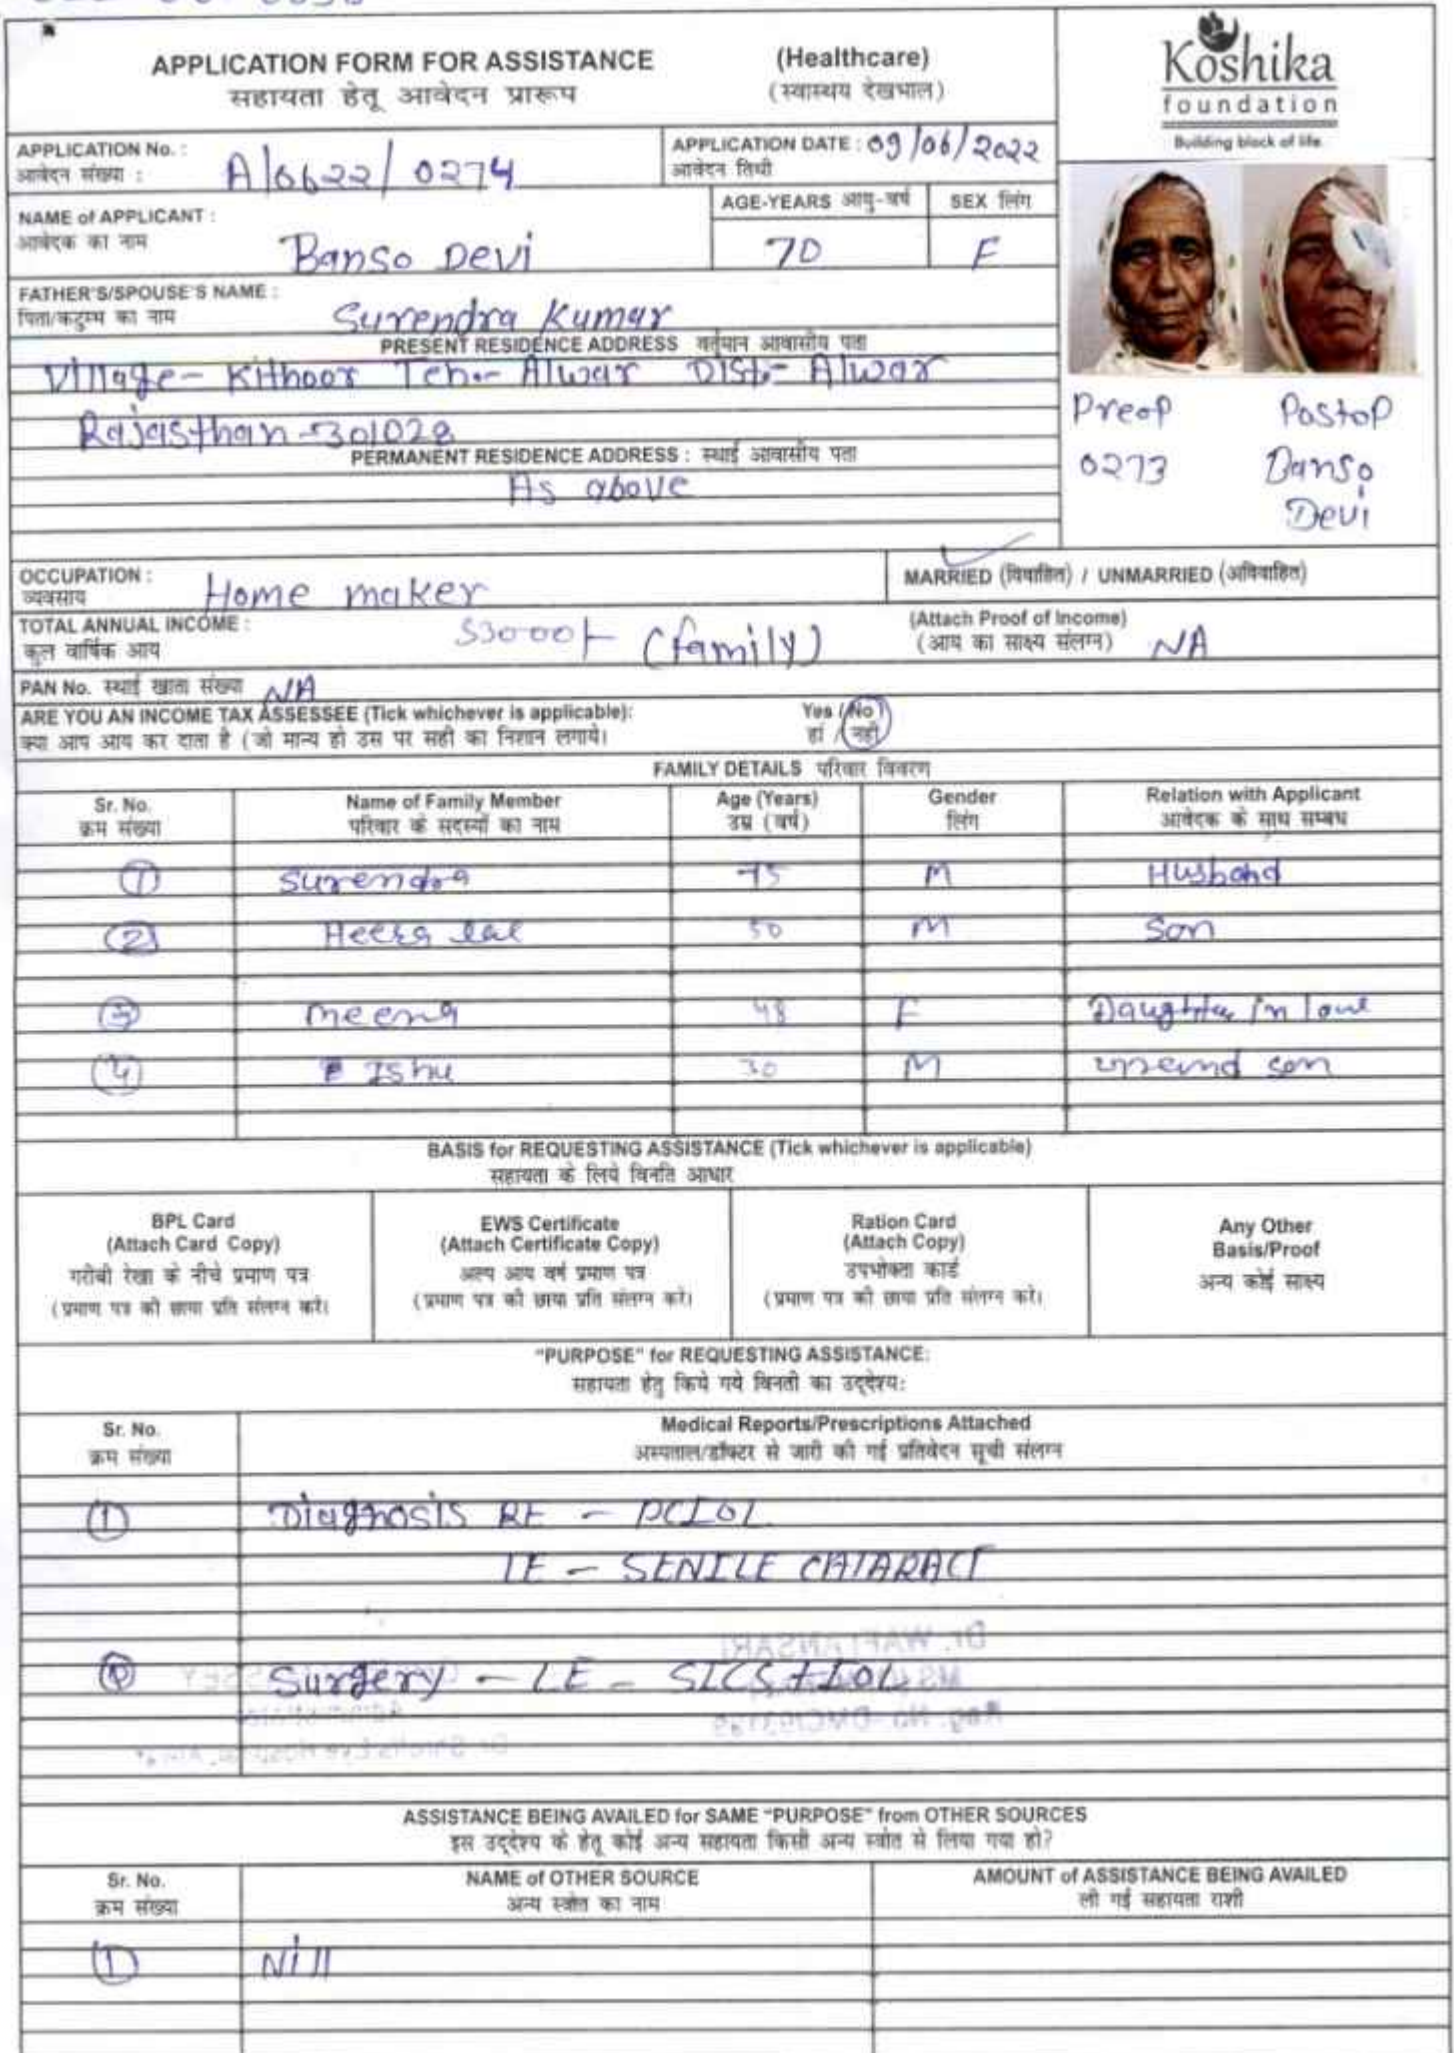 APPLICATION FORM FOR ASSISTANCE (Healthcare)
सहायता हेतू आवेदन प्रारूप (स्वास्थय देखभाल)
Koshika
foundation
Building block of life
APPLICATION No. : A/0622/0274
आवेदन संख्या :
APPLICATION DATE : 09/06/2022
आवेदन तिथी
NAME of APPLICANT : Banso Devi
आवेदक का नाम
AGE-YEARS आयु-वर्ष 70
SEX लिंग F
FATHER'S/SPOUSE'S NAME : Surendra Kumar
पिता/कटुम्भ का नाम
PRESENT RESIDENCE ADDRESS वर्तमान आवासीय पता
Village- Kithoor Teh.- Alwar Dist.- Alwar
Rajasthan-301028
PERMANENT RESIDENCE ADDRESS : स्थाई आवासीय पता
As above
Preop Postop
0273 Banso
Devi
OCCUPATION : Home maker
व्यवसाय
MARRIED (विवाहित) / UNMARRIED (अविवाहित)
TOTAL ANNUAL INCOME : 53000/- (family)
कुल वार्षिक आय
(Attach Proof of Income)
(आय का साक्ष्य संलग्न) NA
PAN No. स्थाई खाता संख्या NA
ARE YOU AN INCOME TAX ASSESSEE (Tick whichever is applicable): Yes / No
क्या आप आय कर दाता है (जो मान्य हो उस पर सही का निशान लगाये। हां / नहीं
FAMILY DETAILS परिवार विवरण
Sr. No. Name of Family Member Age (Years) Gender Relation with Applicant
क्रम संख्या परिवार के सदस्यों का नाम उम्र (वर्ष) लिंग आवेदक के साथ सम्बंध
1 Surendra 75 M Husband
2 Heera lal 50 M Son
3 meena 48 F Daughter in law
4 Ishu 30 M son
BASIS for REQUESTING ASSISTANCE (Tick whichever is applicable)
सहायता के लिये विनति आधार
BPL Card
(Attach Card Copy)
गरीबी रेखा के नीचे प्रमाण पत्र
(प्रमाण पत्र की छाया प्रति संलग्न करें।
EWS Certificate
(Attach Certificate Copy)
अल्प आय वर्ग प्रमाण पत्र
(प्रमाण पत्र की छाया प्रति संलग्न करें।
Ration Card
(Attach Copy)
उपभोक्ता कार्ड
(प्रमाण पत्र की छाया प्रति संलग्न करें।
Any Other
Basis/Proof
अन्य कोई साक्ष्य
"PURPOSE" for REQUESTING ASSISTANCE:
सहायता हेतु किये गये विनती का उद्देश्य:
Sr. No. Medical Reports/Prescriptions Attached
क्रम संख्या अस्पताल/डॉक्टर से जारी की गई प्रतिवेदन सूची संलग्न
1 Diagnosis RE - PCIOL
LE - SENILE CATARACT
Surgery - LE - SICS + IOL
ASSISTANCE BEING AVAILED for SAME "PURPOSE" from OTHER SOURCES
इस उद्देश्य के हेतू कोई अन्य सहायता किसी अन्य स्त्रोत से लिया गया हो?
Sr. No. NAME of OTHER SOURCE AMOUNT of ASSISTANCE BEING AVAILED
क्रम संख्या अन्य स्त्रोत का नाम ली गई सहायता राशी
1 Nill